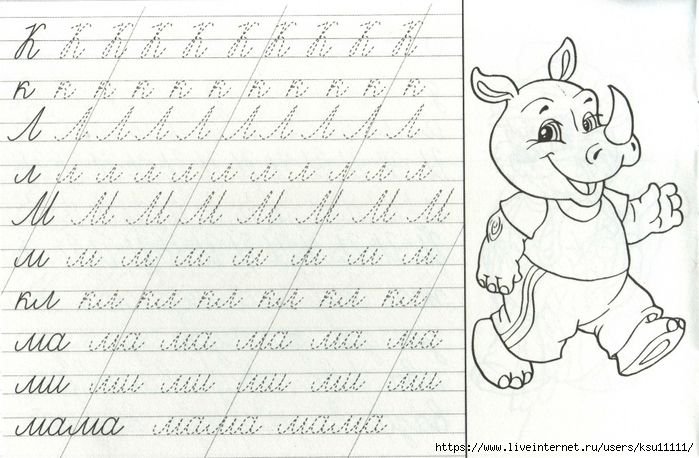 К К К К К К К К К К
к к к к к к к к к к к
Л Л Л Л Л Л Л Л Л Л
л л л л л л л л л л л
М М М М М М М М
м м м м м м м м
кл кл кл кл кл кл кл
ма ма ма ма ма ма
ми ми ми ми ми ми
мама мама мама
https://www.liveinternet.ru/users/ksu11111/